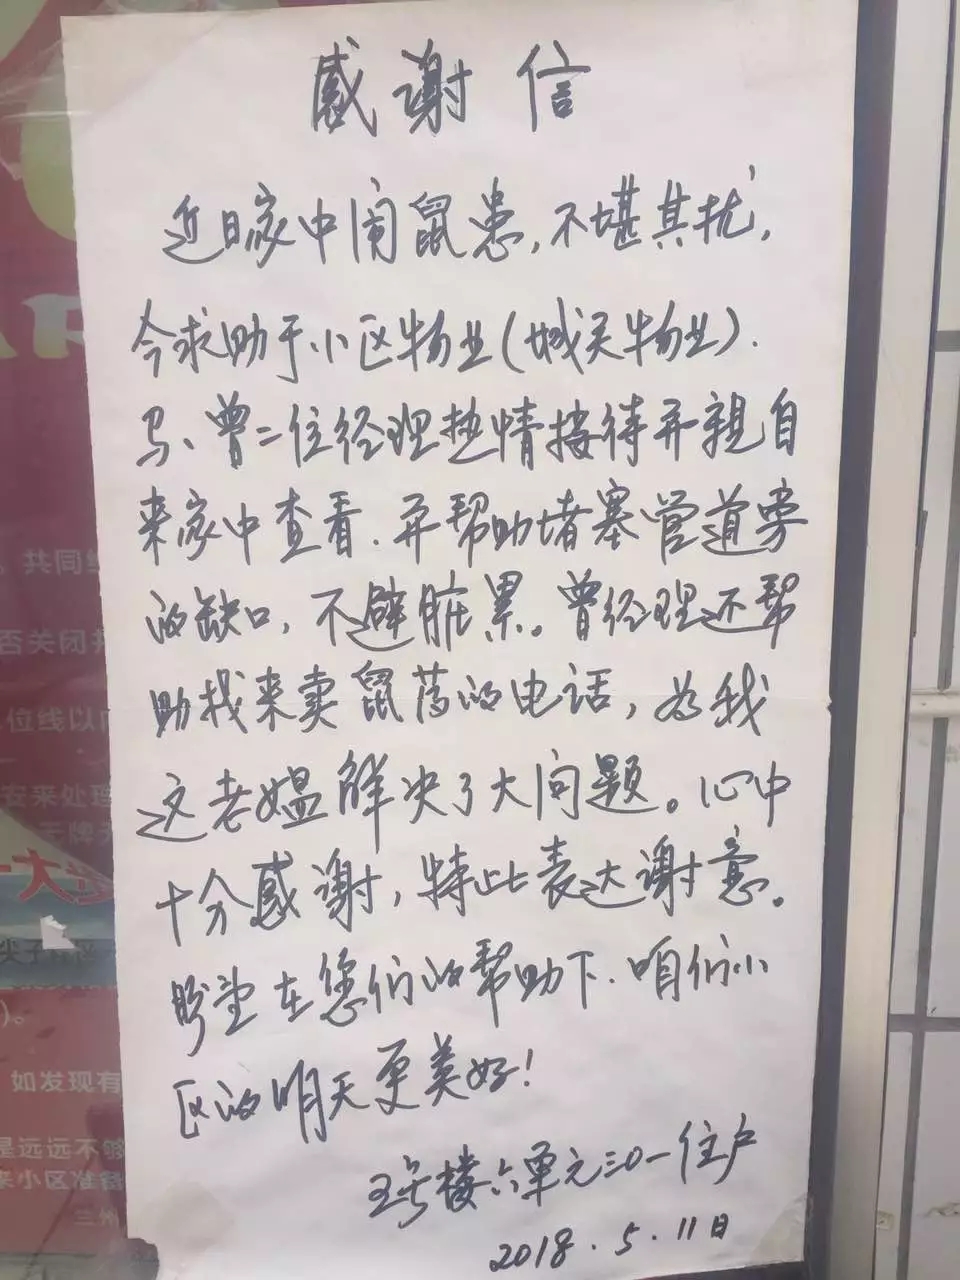 感谢信
近日家中闹鼠患,不堪其扰,
今求助于小区物业(城关物业).
马、曾二位经理热情接待并亲自
来家中查看.并帮助堵塞管道旁
的缺口,不避脏累。曾经理还帮
助找来卖鼠药的电话,为我
这老媪解决了大问题。心中
十分感谢,特此表达谢意。
盼望在您们的帮助下.咱们小
区的明天更美好!
五号楼六单元三0一住户
2018.5.11日
共同
否关闭
位线以
安来处理
大
如发现有
是远远不够
来小区准备
兰州